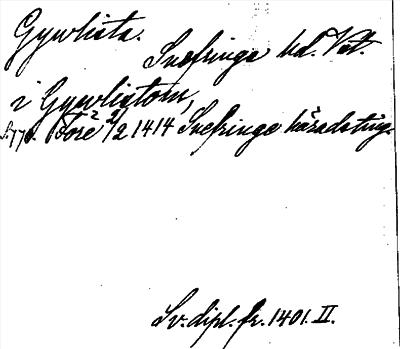 Gywlista.
Snefringe hd. Vstm.
i Gywlistom,
Fore 2/2 1414 Snefringe häradsting.
Sv. dipl. fr. 1401. II.